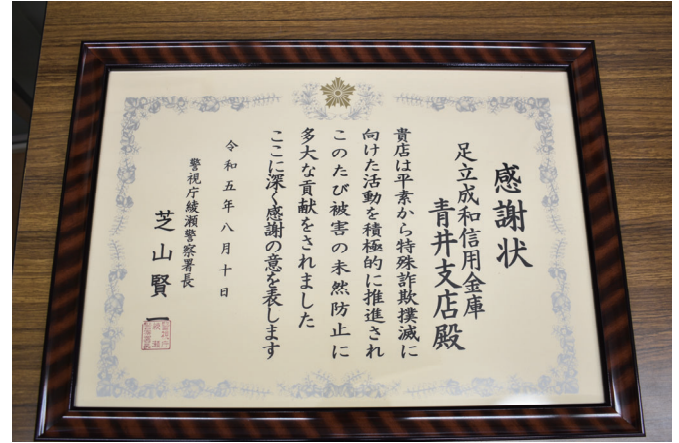 感謝状
足立成和信用金庫
青井支店殿
貴店は平素から特殊詐欺撲滅に
向けた活動を積極的に推進され
このたび被害の未然防止に
多大な貢献をされました
ここに深く感謝の意を表します
令和五年八月十日
警視庁綾瀬警察署長
芝山賢一